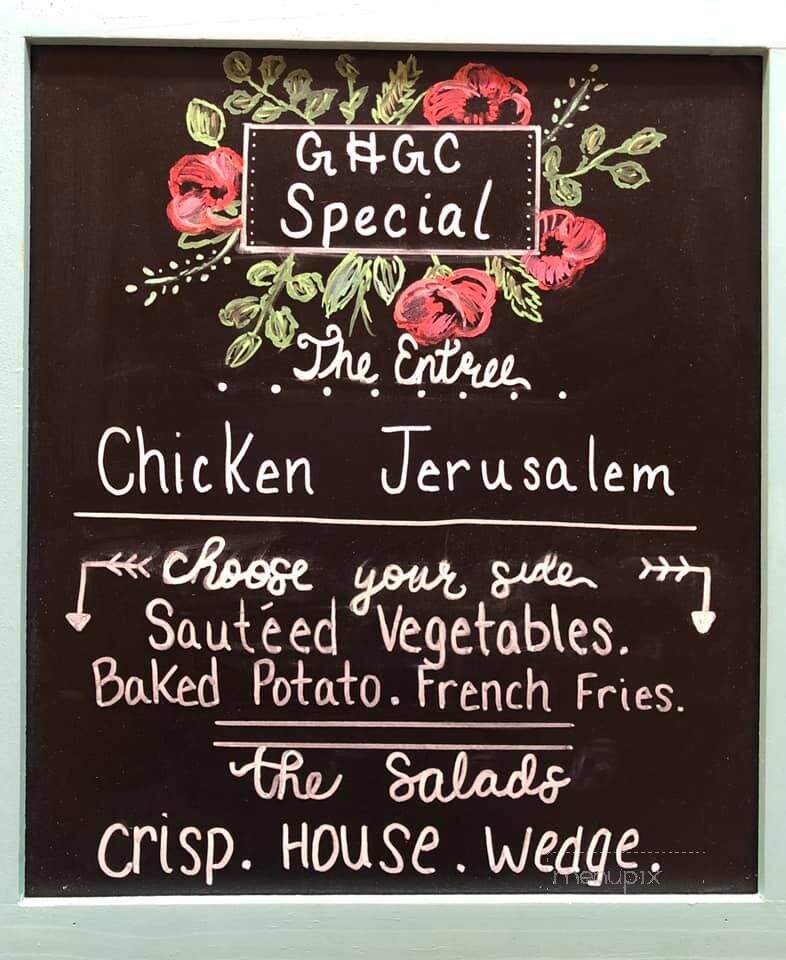 GHGC
Special
The Entree
Chicken Jerusalem
choose your side
Sautéed Vegetables.
Baked Potato. French Fries.
the Salads
Crisp. House. Wedge.
menupix